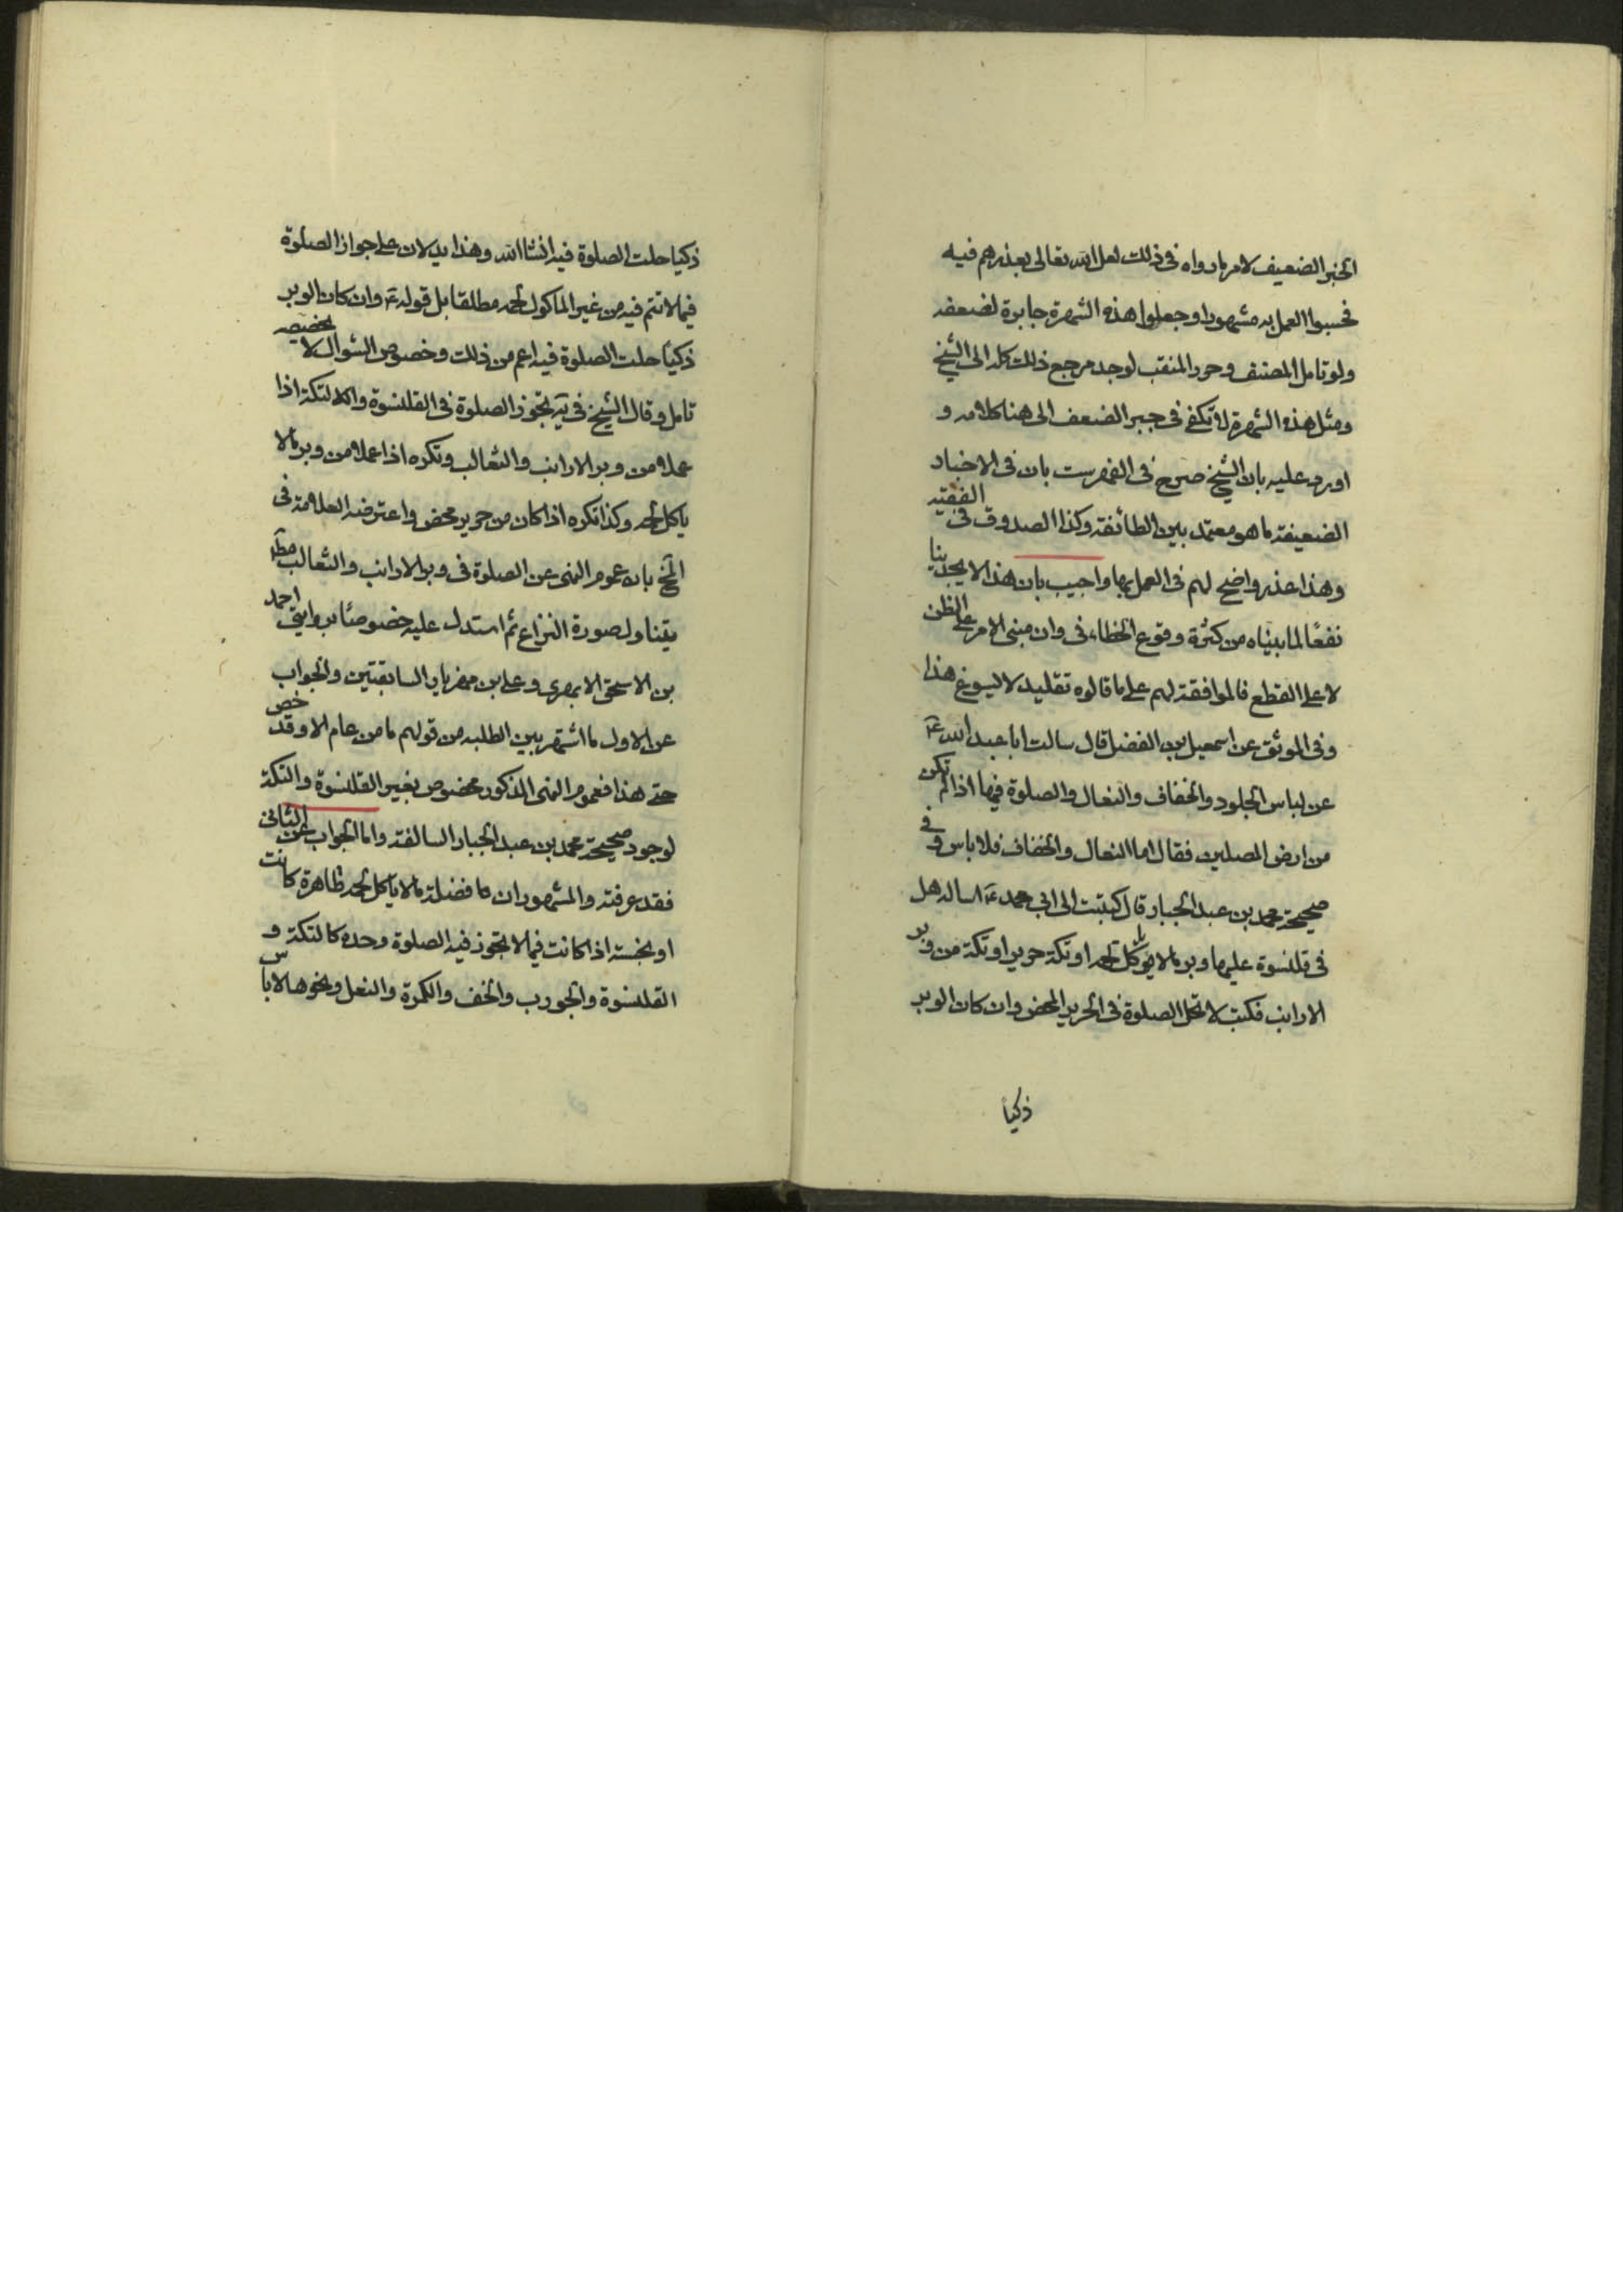 الخبر الضعيف لامر ما رواه فى ذلك لعل الله تعالى يعذرهم فيه
فحسبوا العمل به مشهورا وجعلوا هذه الشهرة جابرة لضعفه
ولو تامل المصنف وحرر المنقب لوجد مرجع ذلك كله الى الشيخ
ومثل هذه الشهرة لا تكفى فى جبر الضعف الى هنا كلامه و
اورد عليه بان الشيخ صرح فى الفهرست بان فى الاخبار
الضعيفة ما هو معتمد بين الطائفة وكذا الصدوق فى الفقيه
وهذا عذر واضح لهم فى العمل بها واجيب بان هذا لا يجدينا
نفعًا لما بيناه من كثرة وقوع الخطاء فى وان مبنى الامر على الظن
لا على القطع فالموافقة لهم على ما قالوه تقليد لا يسوغ هذا
وفى الموثق عن اسمعيل بن الفضل قال سالت ابا عبد الله ع
عن لباس الجلود والخفاف والنعال والصلوة فيها اذا لم تكن
من ارض المصلين فقال اما النعال والخفاف فلا باس و فى
صحيحة محمد بن عبد الجبار قال كتبت الى ابى محمد ع اساله هل
فى قلنسوة عليها وبر ما لا يوكل لحمه او تكة حرير او تكة من وبر
الارانب فكتب لا تحل الصلوة فى الحرير المحض وان كان الوبر
ذكيا
ذكيا حلت الصلوة فيه انشاالله وهذا يدلان على جواز الصلوة
فيما لا تتم فيه من غير الماكول لحمه مطلقا بل قوله ع وان كان الوبر
ذكيًا حلت الصلوة فيه اعم من ذلك وخصوص السوال لا يخصصه
تامل وقال الشيخ فى يه تجوز الصلوة فى القلنسوة والتكة اذا
عملا من وبر الارانب والثعالب وتكره اذا عملا من وبر ما لا
ياكل لحمه وكذا تكره اذا كان من حرير محض واعترضه العلامة فى
المخ بان عموم النهى عن الصلوة فى وبر الارانب والثعالب مطلقا
يتناول صورة النزاع ثم استدل عليه خصوصًا بروايتى احمد
بن الاسحق الابهرى وعلى بن مهزيار السابقتين والجواب
عن الاول ما اشتهر بين الطلبه من قولهم ما من عام الا وقد خص
حتى هذا فعموم النهى المذكور مخصوص بغير القلنسوة والتكة
لوجود صحيحة محمد بن عبد الجبار السالفة واما الجواب عن الثانى
فقد عرفته والمشهور ان ما فضلة ما لا ياكل لحمه طاهرة كانت
او نجسة اذا كانت فيما لا تجوز فيه الصلوة وحده كالتكة و
القلنسوة والجورب والخف والكمرة والنعل ونحوها لا باس